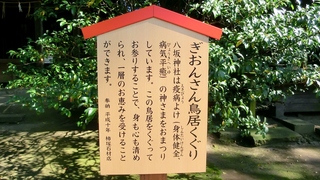 ぎおんさん鳥居くぐり
八坂神社は疫病よけ(身体健全、
病気平癒)の神さまをおまつり
しています。この鳥居をくぐって
お参りすることで、身も心も清め
られ、一層のお恵みを受けること
ができます。
奉納 平成